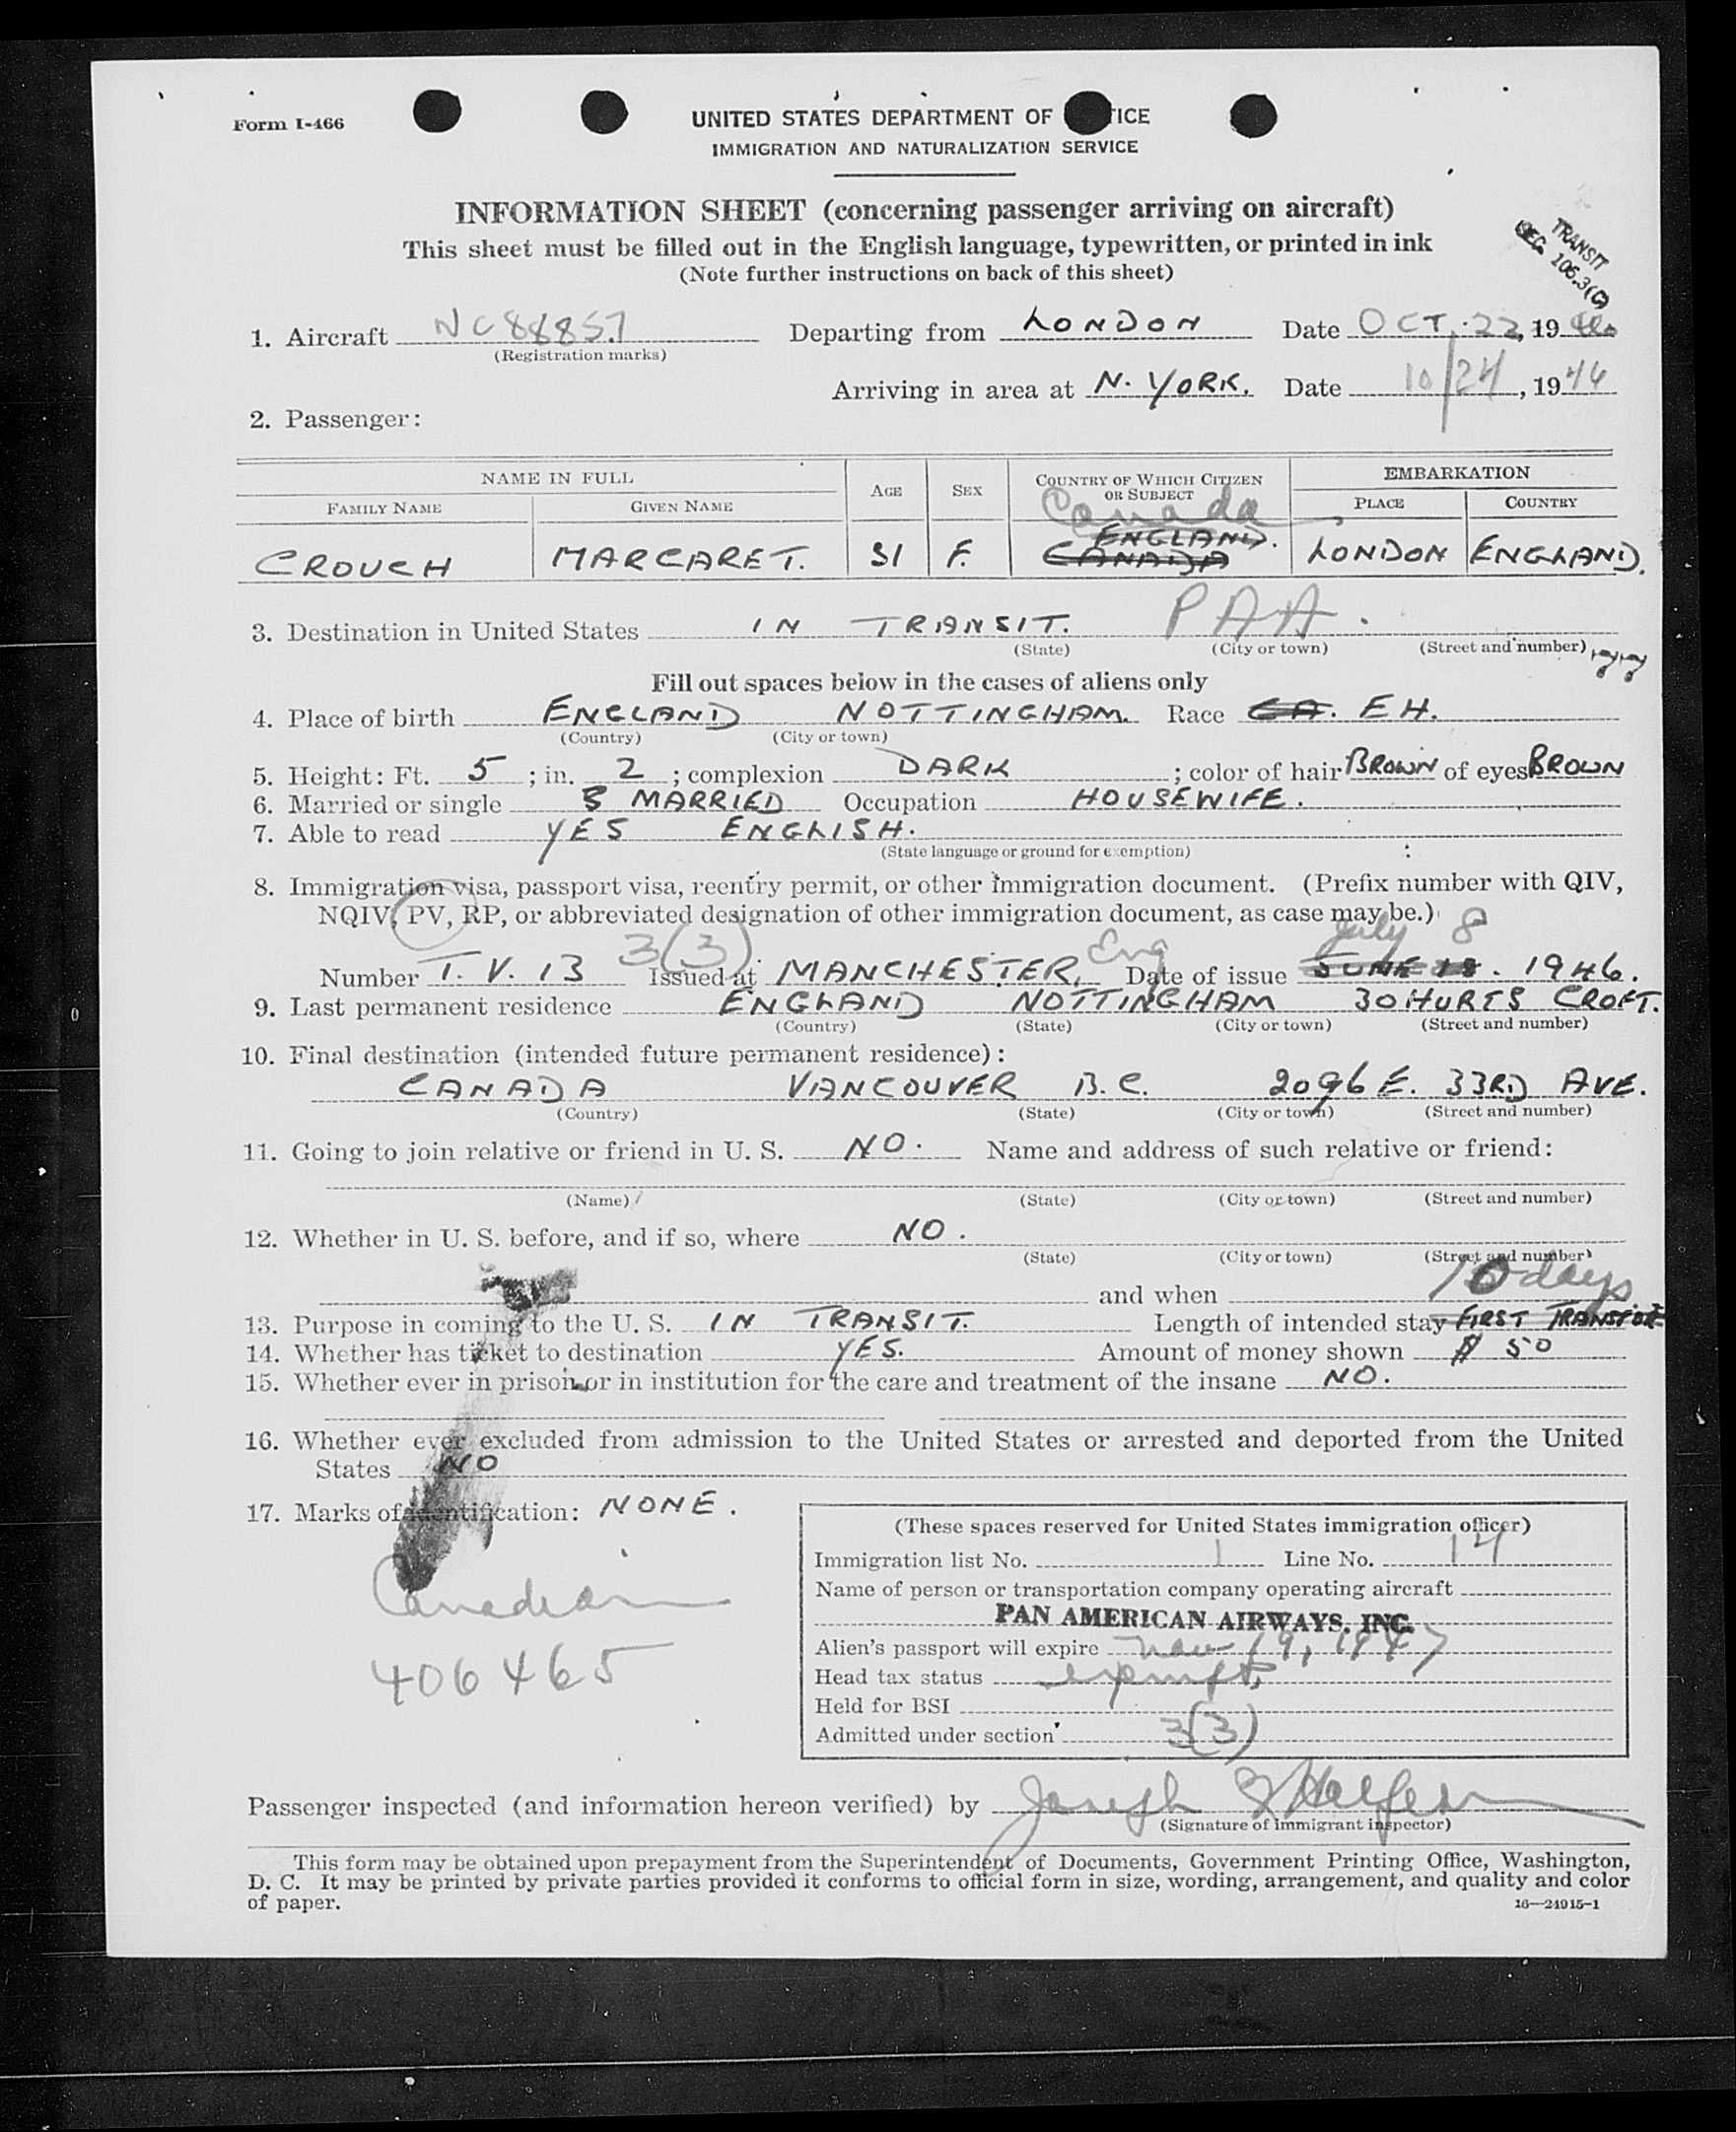 Form I-466
UNITED STATES DEPARTMENT OF ICE
IMMIGRATION AND NATURALIZATION SERVICE
INFORMATION SHEET (concerning passenger arriving on aircraft)
This sheet must be filled out in the English language, typewritten, or printed in ink
(Note further instructions on back of this sheet)
TRANSIT
SEC. 106.3(G)
1. Aircraft NC88857 Departing from LONDON Date OCT. 22, 1946
(Registration marks)
Arriving in area at N. YORK. Date 10/24, 1946
2. Passenger:
NAME IN FULL AGE SEX COUNTRY OF WHICH CITIZEN OR SUBJECT EMBARKATION
FAMILY NAME GIVEN NAME PLACE COUNTRY
Canada
ENGLAND.
CROUCH MARGARET. 31 F. CANADA LONDON ENGLAND.
3. Destination in United States IN TRANSIT. PAA.
(State) (City or town) (Street and number)
Fill out spaces below in the cases of aliens only
4. Place of birth ENGLAND NOTTINGHAM. Race CA. EH.
(Country) (City or town)
5. Height: Ft. 5 ; in. 2 ; complexion DARK ; color of hair BROWN of eyes BROWN
6. Married or single S MARRIED Occupation HOUSEWIFE.
7. Able to read YES ENGLISH.
(State language or ground for exemption)
8. Immigration visa, passport visa, reentry permit, or other immigration document. (Prefix number with QIV,
NQIV, PV, RP, or abbreviated designation of other immigration document, as case may be.)
3(3) Eng July 8
Number T. V. 13 Issued at MANCHESTER, Date of issue JUNE 18. 1946.
9. Last permanent residence ENGLAND NOTTINGHAM 30 HURTS CROFT.
(Country) (State) (City or town) (Street and number)
10. Final destination (intended future permanent residence):
CANADA VANCOUVER B.C. 2096 E. 33RD AVE.
(Country) (State) (City or town) (Street and number)
11. Going to join relative or friend in U. S. NO. Name and address of such relative or friend:
(Name) (State) (City or town) (Street and number)
12. Whether in U. S. before, and if so, where NO.
(State) (City or town) (Street and number)
and when
10 days
13. Purpose in coming to the U. S. IN TRANSIT. Length of intended stay FIRST
14. Whether has ticket to destination YES. Amount of money shown $ 50
15. Whether ever in prison or in institution for the care and treatment of the insane NO.
16. Whether ever excluded from admission to the United States or arrested and deported from the United
States NO
17. Marks of identification: NONE.
Canadian
406465
(These spaces reserved for United States immigration officer)
Immigration list No. 1 Line No. 14
Name of person or transportation company operating aircraft
PAN AMERICAN AIRWAYS, INC.
Alien's passport will expire Nov 19, 1947
Head tax status exempt
Held for BSI
Admitted under section 3(3)
Passenger inspected (and information hereon verified) by Joseph
(Signature of immigrant inspector)
This form may be obtained upon prepayment from the Superintendent of Documents, Government Printing Office, Washington,
D. C. It may be printed by private parties provided it conforms to official form in size, wording, arrangement, and quality and color
of paper.
16—24915-1